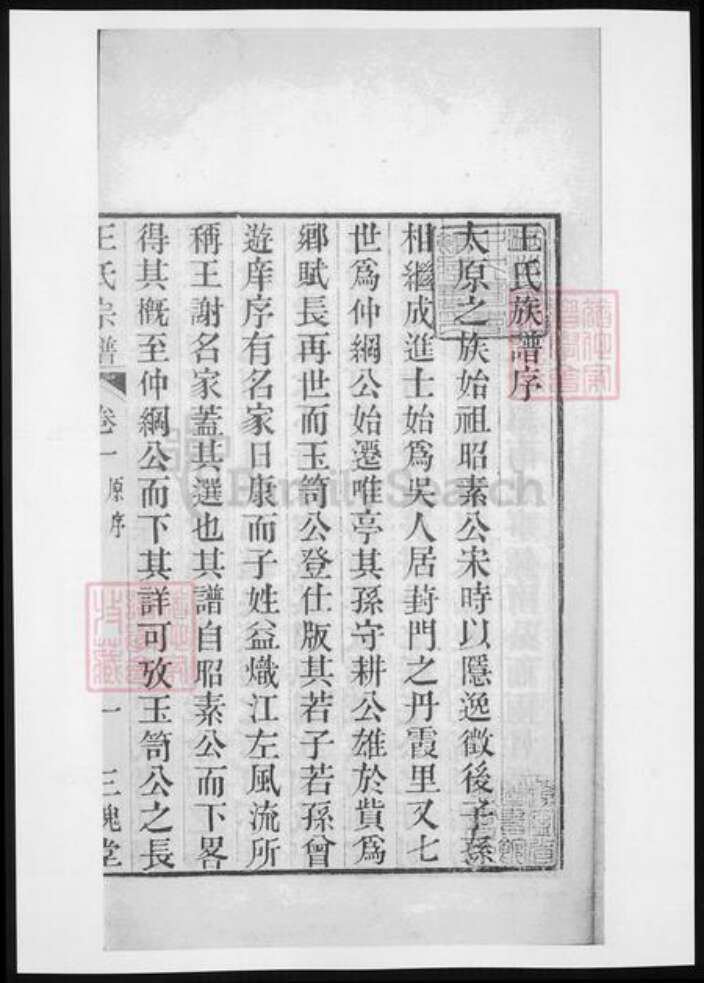 王氏族譜序
太原之族始祖昭素公宋時以隱逸徵後子孫
相繼成進士始爲吳人居葑門之丹霞里又七
世爲仲綱公始遷唯亭其孫守耕公雄於貲爲
鄉賦長再世而玉笥公登仕版其若子若孫曾
遊庠序有名家日康而子姓益熾江左風流所
稱王謝名家蓋其選也其譜自昭素公而下畧
得其槪至仲綱公而下其詳可攷玉笥公之長
王氏宗譜 卷一 原序 一 三槐堂
FamilySearch